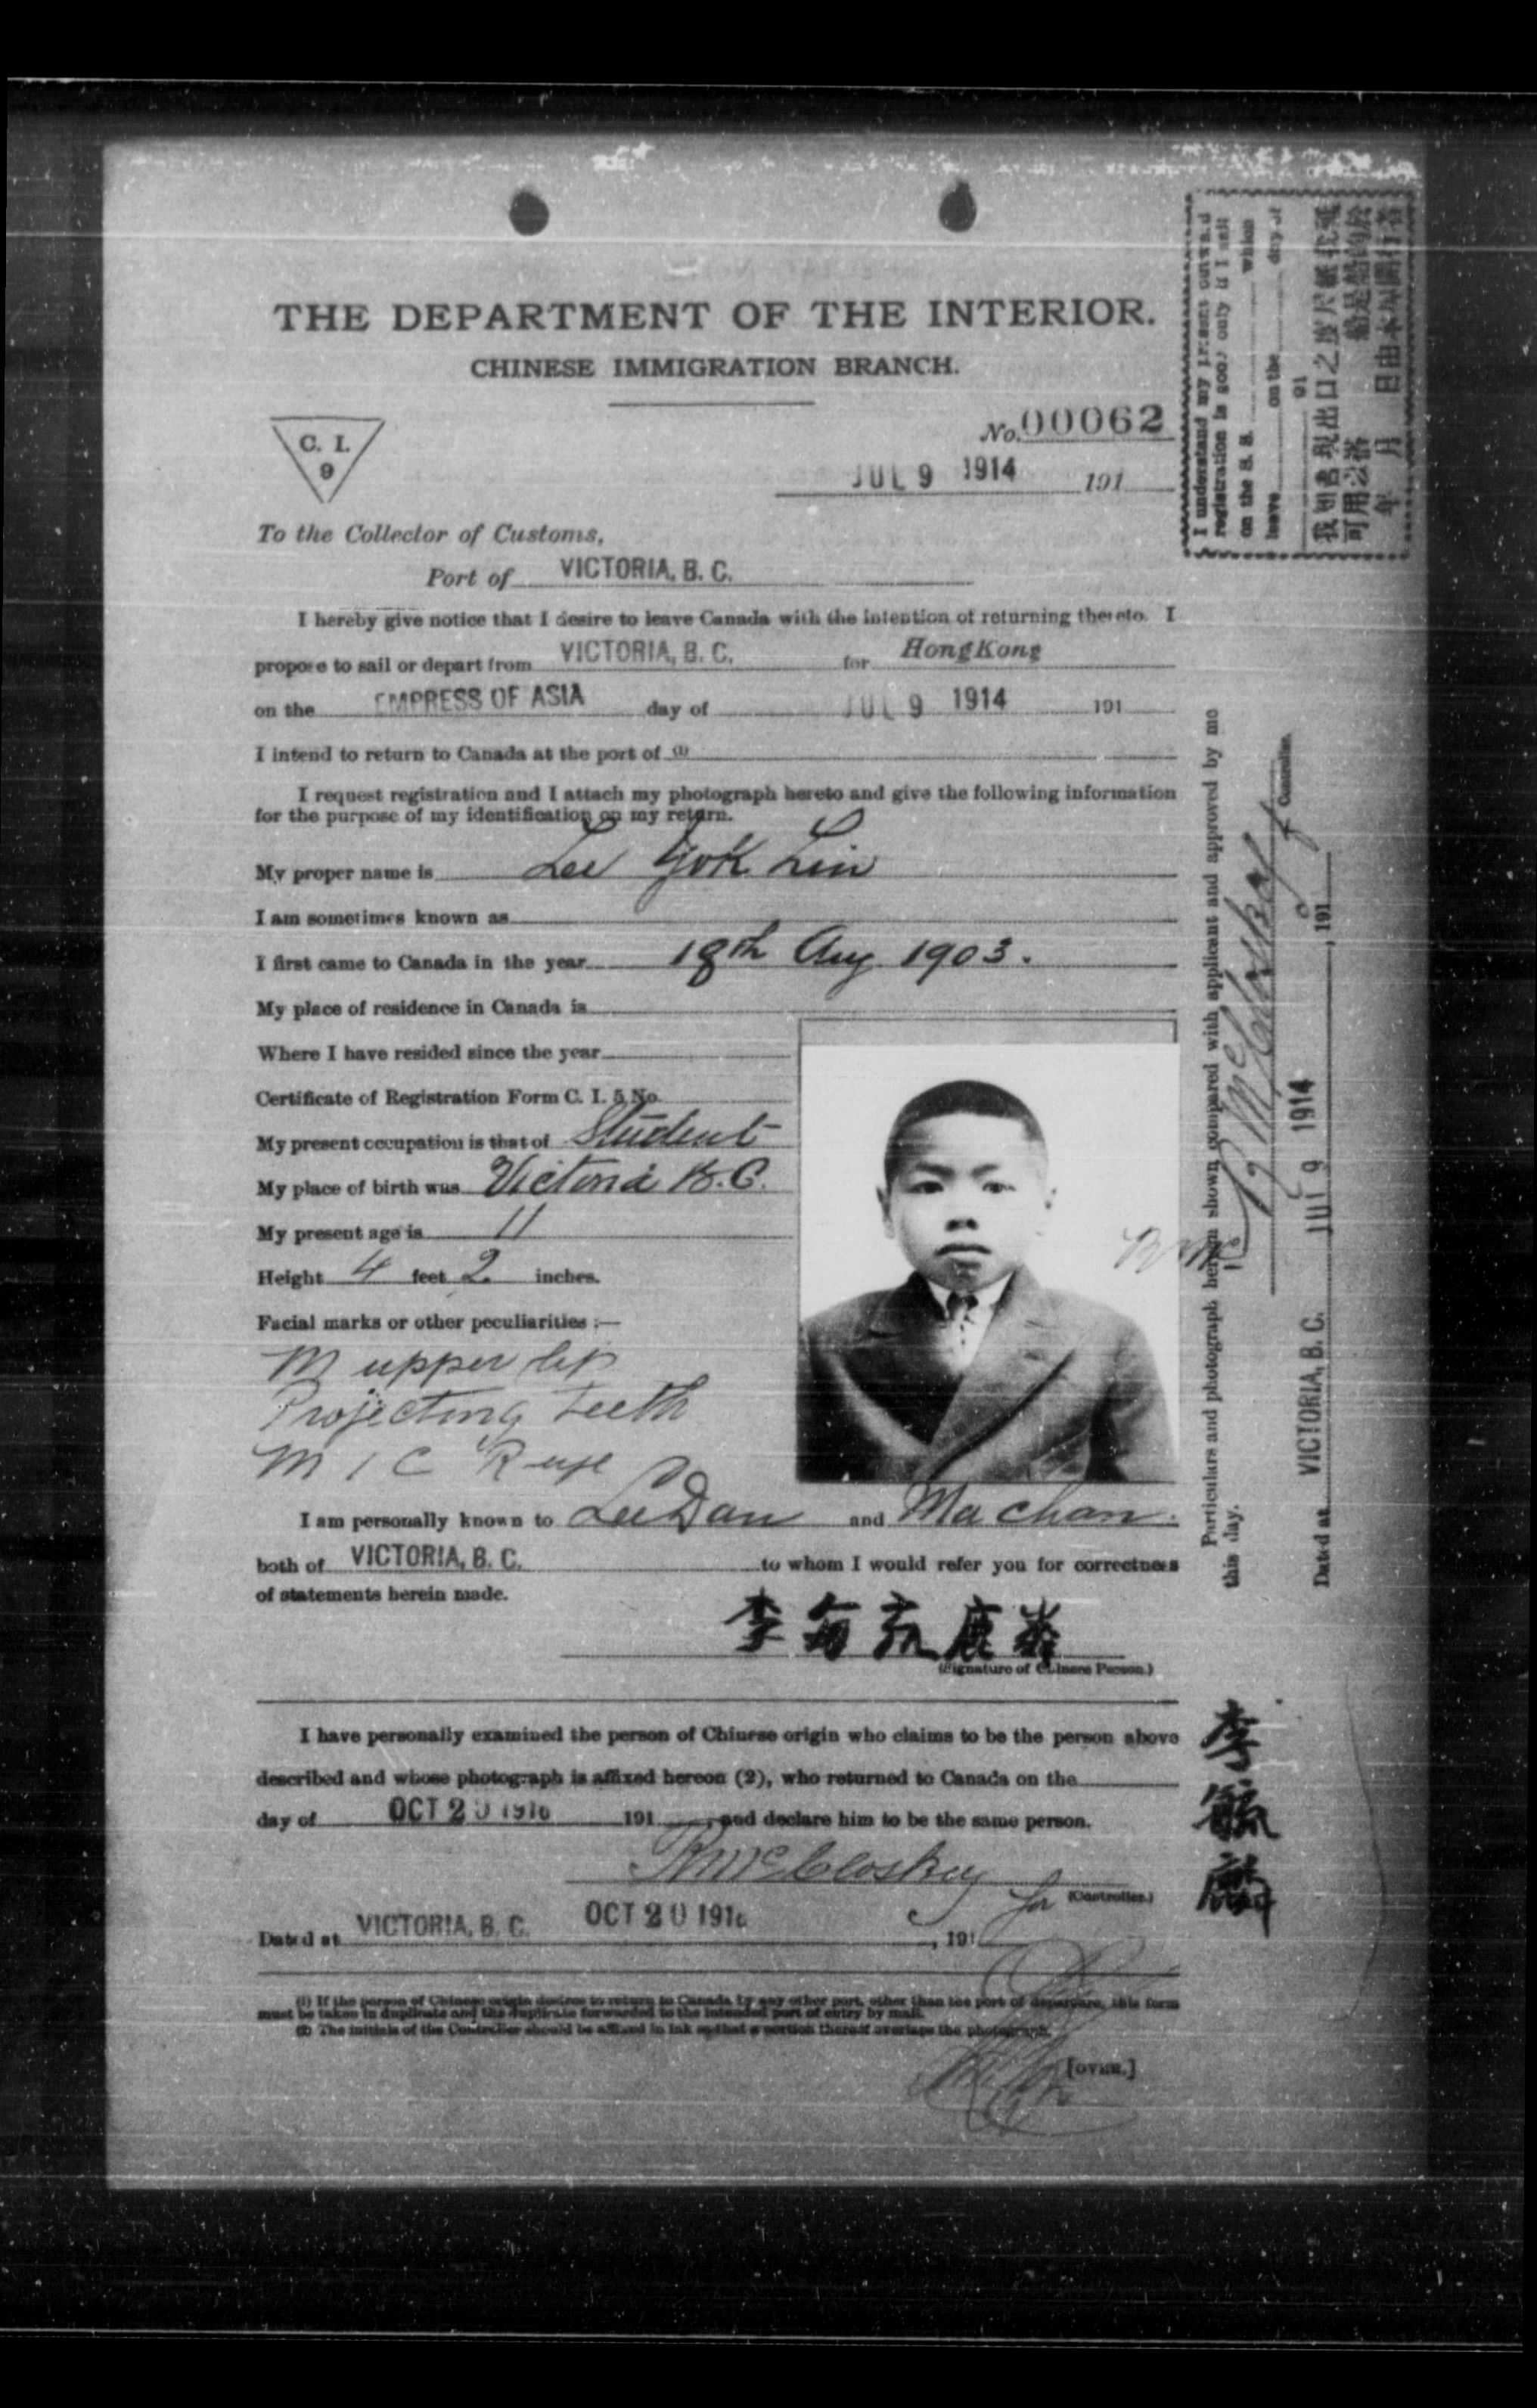 THE DEPARTMENT OF THE INTERIOR.
CHINESE IMMIGRATION BRANCH.
C. I.
9
No. 00062
JUL 9 1914 191
To the Collector of Customs,
Port of VICTORIA, B. C.
I hereby give notice that I desire to leave Canada with the intention of returning thereto. I
propose to sail or depart from VICTORIA, B. C. for HongKong
on the EMPRESS OF ASIA day of JUL 9 1914 191
I intend to return to Canada at the port of (1)
I request registration and I attach my photograph hereto and give the following information
for the purpose of my identification on my return.
My proper name is Lee Yok Lin
I am sometimes known as
I first came to Canada in the year 18th Aug 1903.
My place of residence in Canada is
Where I have resided since the year
Certificate of Registration Form C. I. 5 No.
My present occupation is that of Student
My place of birth was Victoria B.C.
My present age is 11
Height 4 feet 2 inches.
Facial marks or other peculiarities :—
M upper lip
Projecting teeth
M I C R eye
I am personally known to Lee Dan and Ma Chan.
both of VICTORIA, B. C. to whom I would refer you for correctness
of statements herein made.
李每㐬鹿粦
(Signature of Chinese Person.)
I have personally examined the person of Chinese origin who claims to be the person above
described and whose photograph is affixed hereon (2), who returned to Canada on the
day of OCT 20 1916 191 , and declare him to be the same person.
R McCloskey for
(Controller.)
Dated at VICTORIA, B. C. OCT 20 1916 , 191
(1) If the person of Chinese origin desires to return to Canada by any other port, other than the port of departure, this form
must be taken in duplicate and the duplicate forwarded to the intended port of entry by mail.
(2) The initials of the Controller should be affixed in ink so that a portion thereof overlaps the photograph.
[OVER.]
I understand my present outward
registration is good only if I sail
on the S. S. which
leave on the day of
91
我知書現出口之度尺紙我
可用若搭 船是船的於
年 月 日由本埠開行者
Particulars and photograph herein shown compared with applicant and approved by me
this day.
McCloskey for
Controller.
Dated at VICTORIA, B. C. JUL 9 1914 , 191
李毓麟